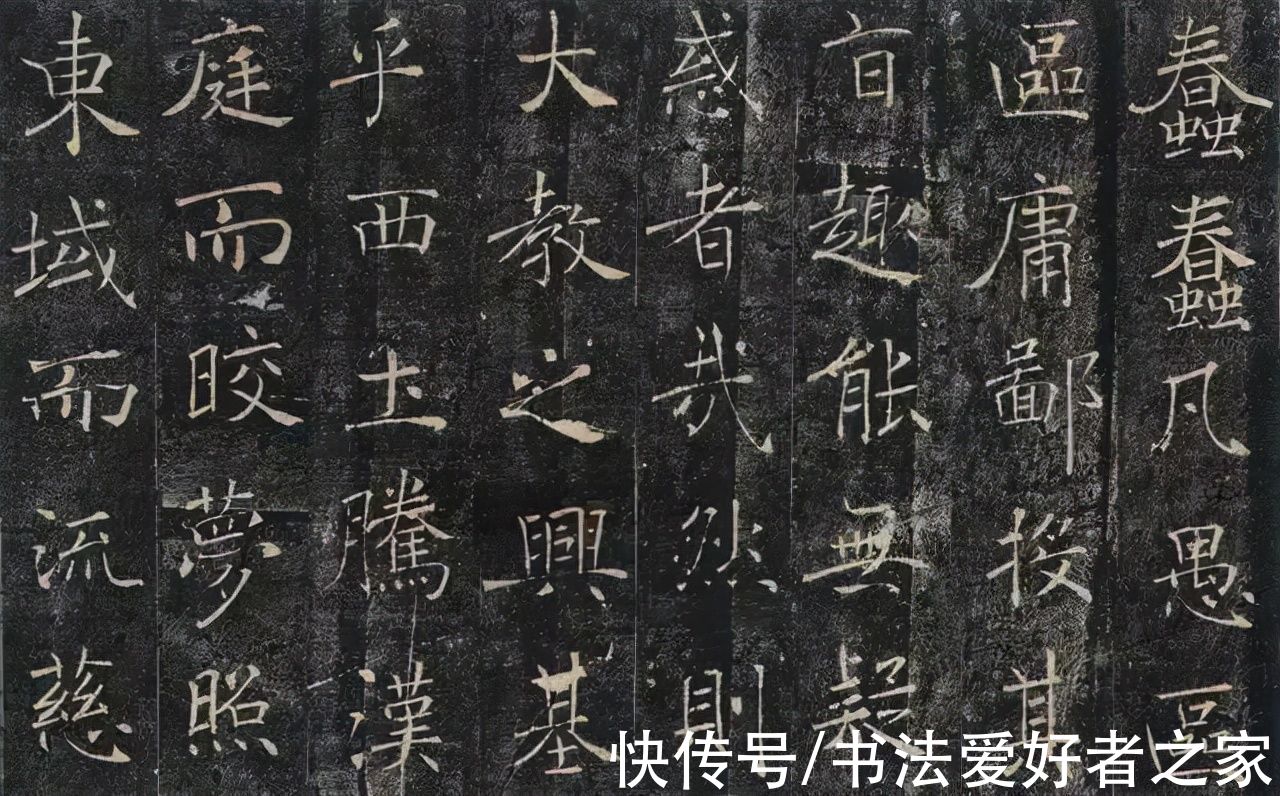 蠢蠢凡愚區
區庸鄙投其
旨趣能無疑
惑者哉然則
大教之興基
乎西土騰漢
庭而晈夢照
東域而流慈
快传号/书法爱好者之家